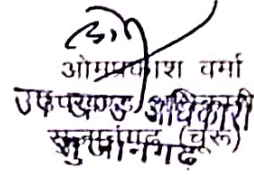 ओमप्रकाश वर्मा
उपखण्ड अधिकारी
सुजानगढ़ (चूरू)